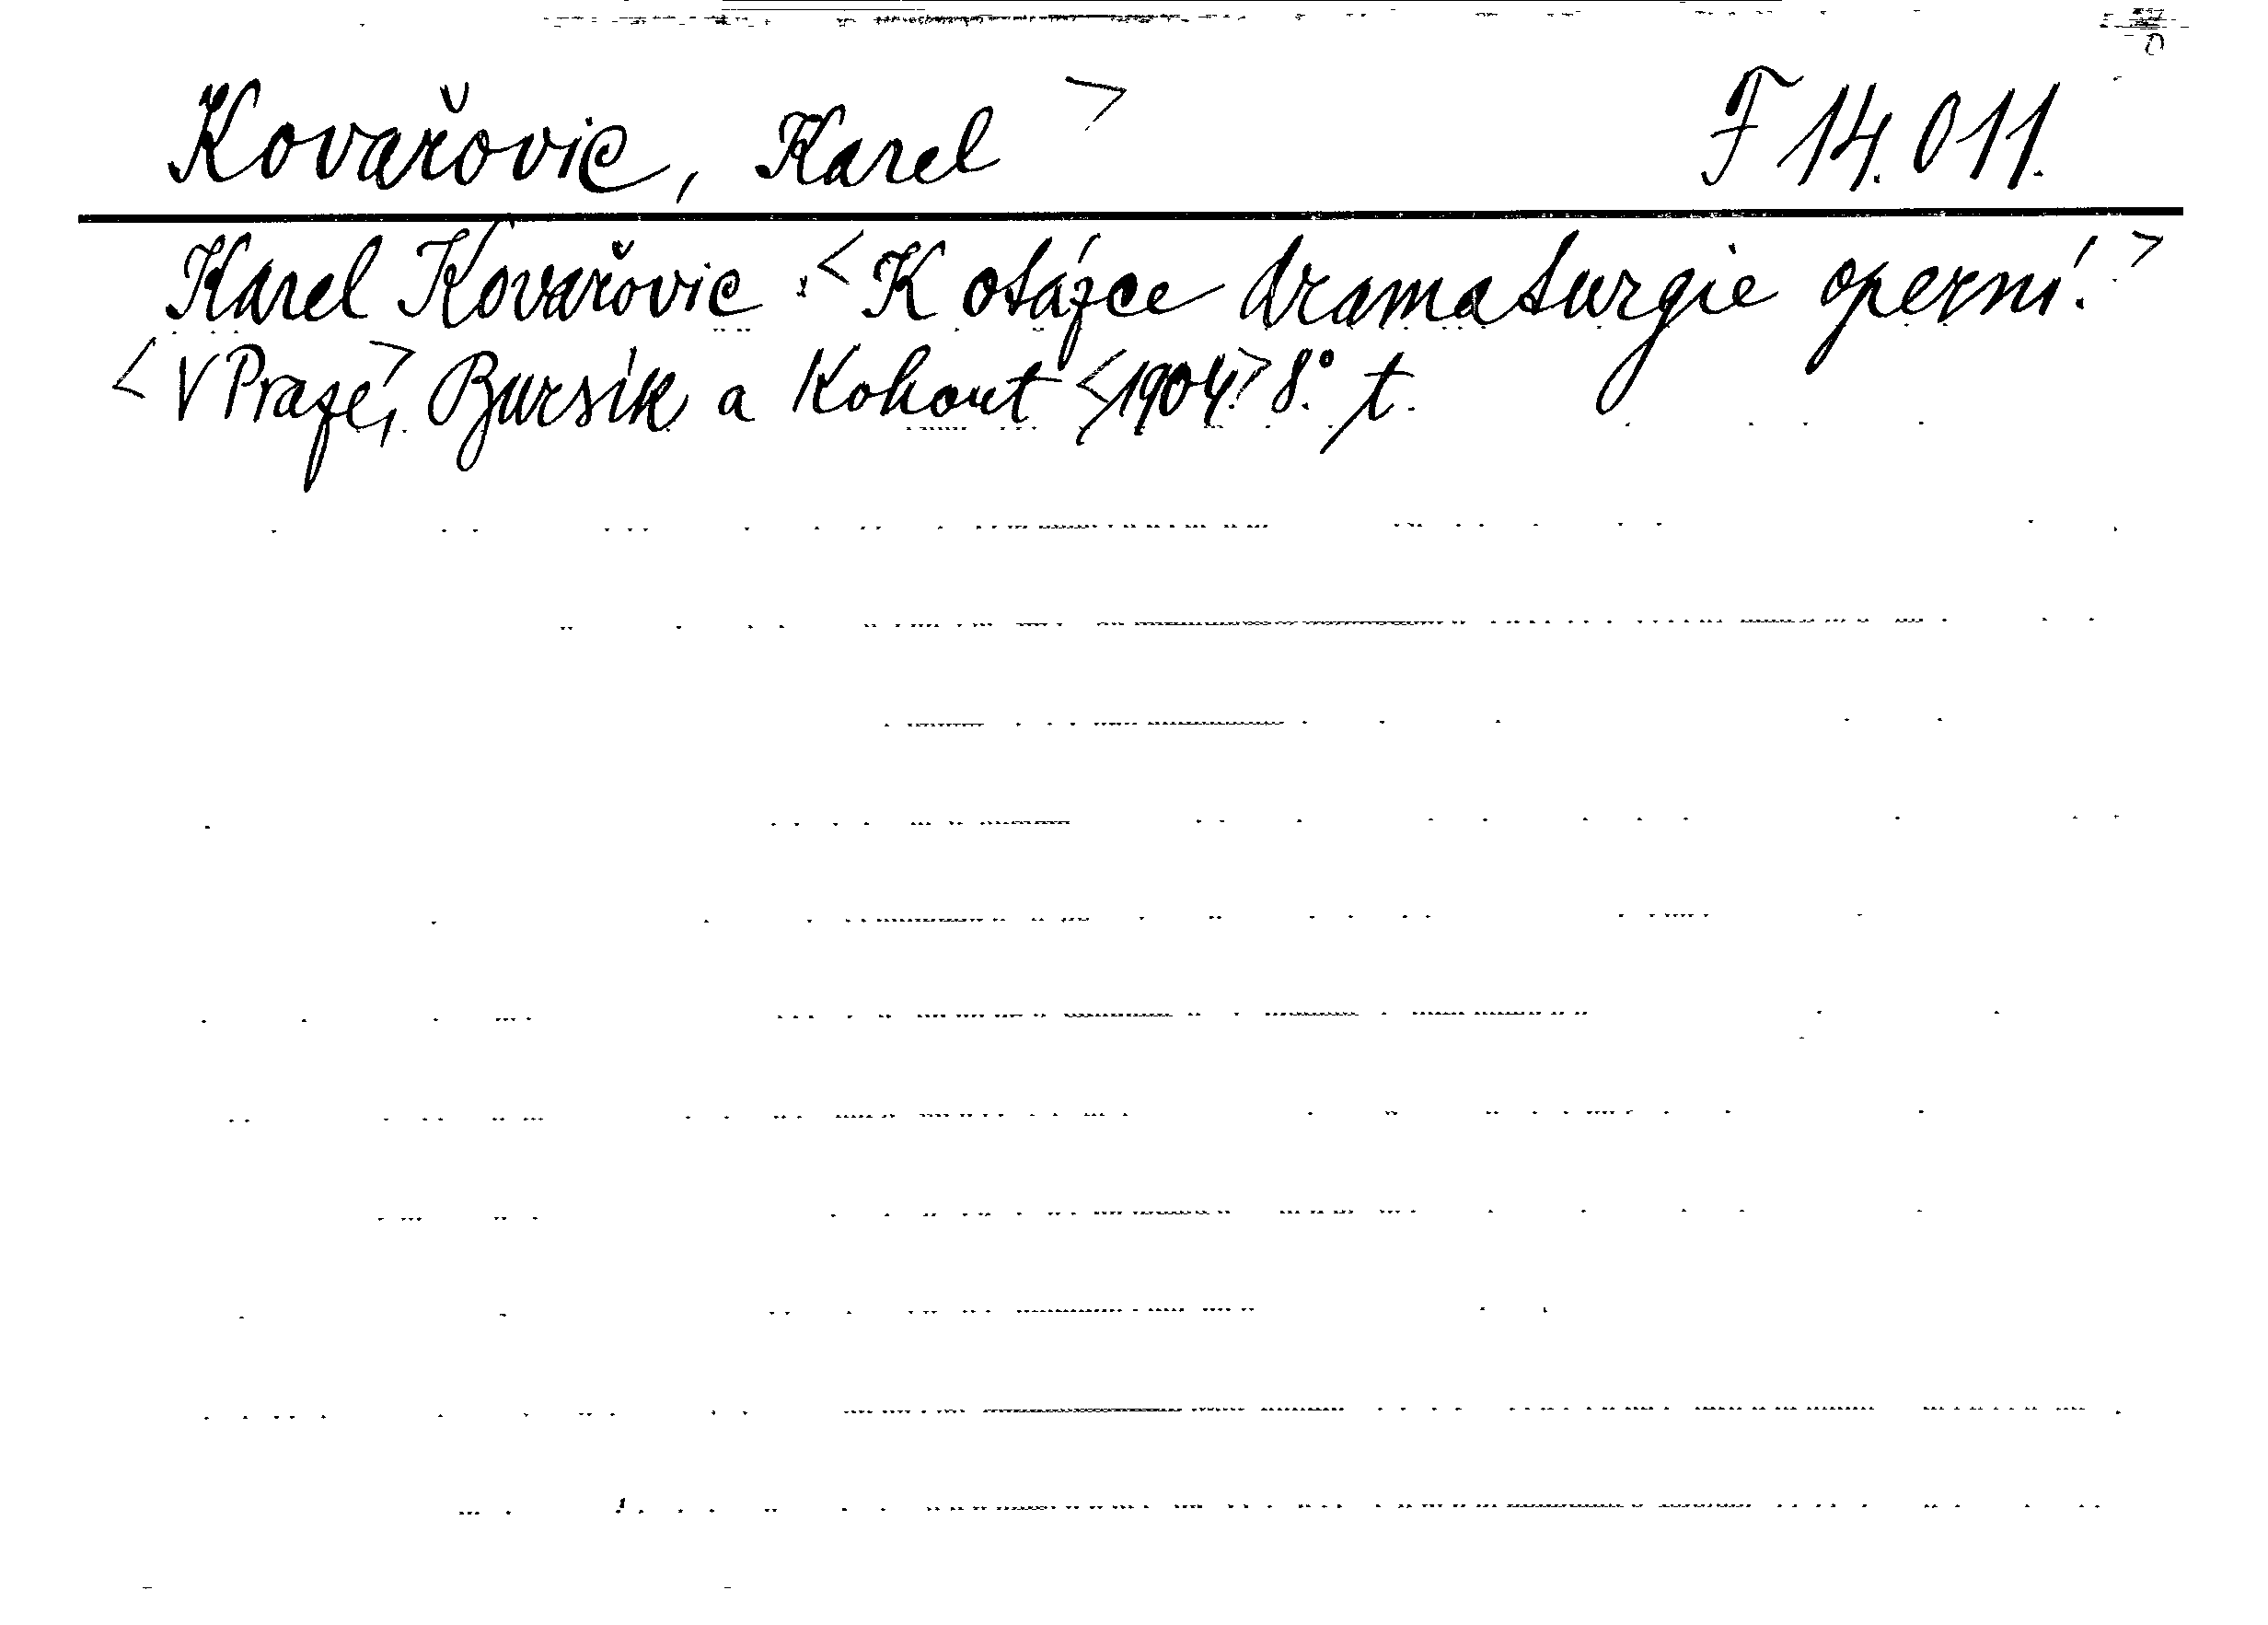 Kovařovic, Karel > F 14.011.
Karel Kovařovic : < K otázce dramaturgie operní. >
< V Praze >, Bursík a Kohout < 1904. > 8°. t.